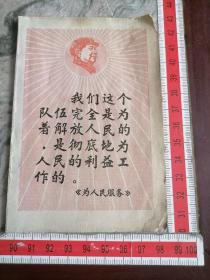 我们这个
队伍完全是为
着解放人民的
，是彻底地为
人民的利益工
作的。
《为人民服务》
90 100 10 20 30 40 50 60 70 80 90